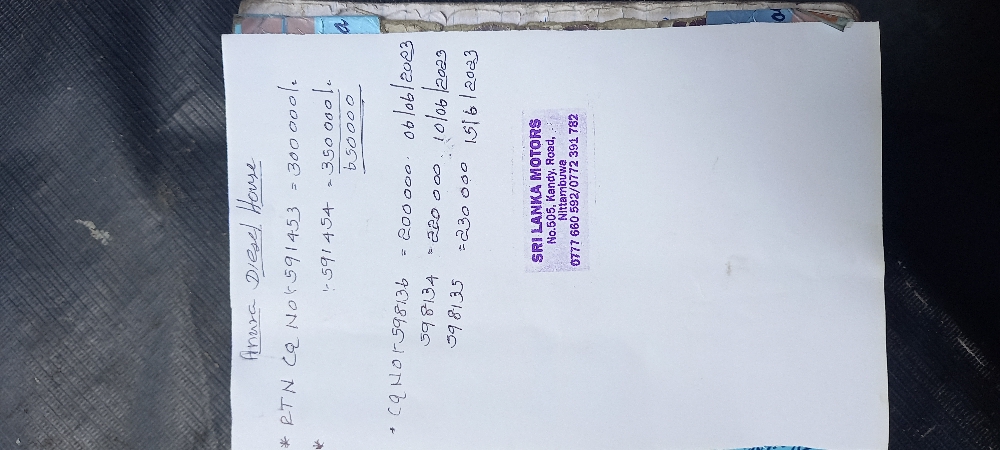 Anura Diesel House
* RTN CQ No :- 591453 = 300000/.
* :- 591454 = 350 000/.
650000
* CQ NO :- 598136 = 200000. 06/06/2023
598134 = 220 000. 10/06/2023
598135 = 230 000 15/6/2023
SRI LANKA MOTORS
No.505, Kandy, Road,
Nittambuwa
0777 660 592/0772 391 782